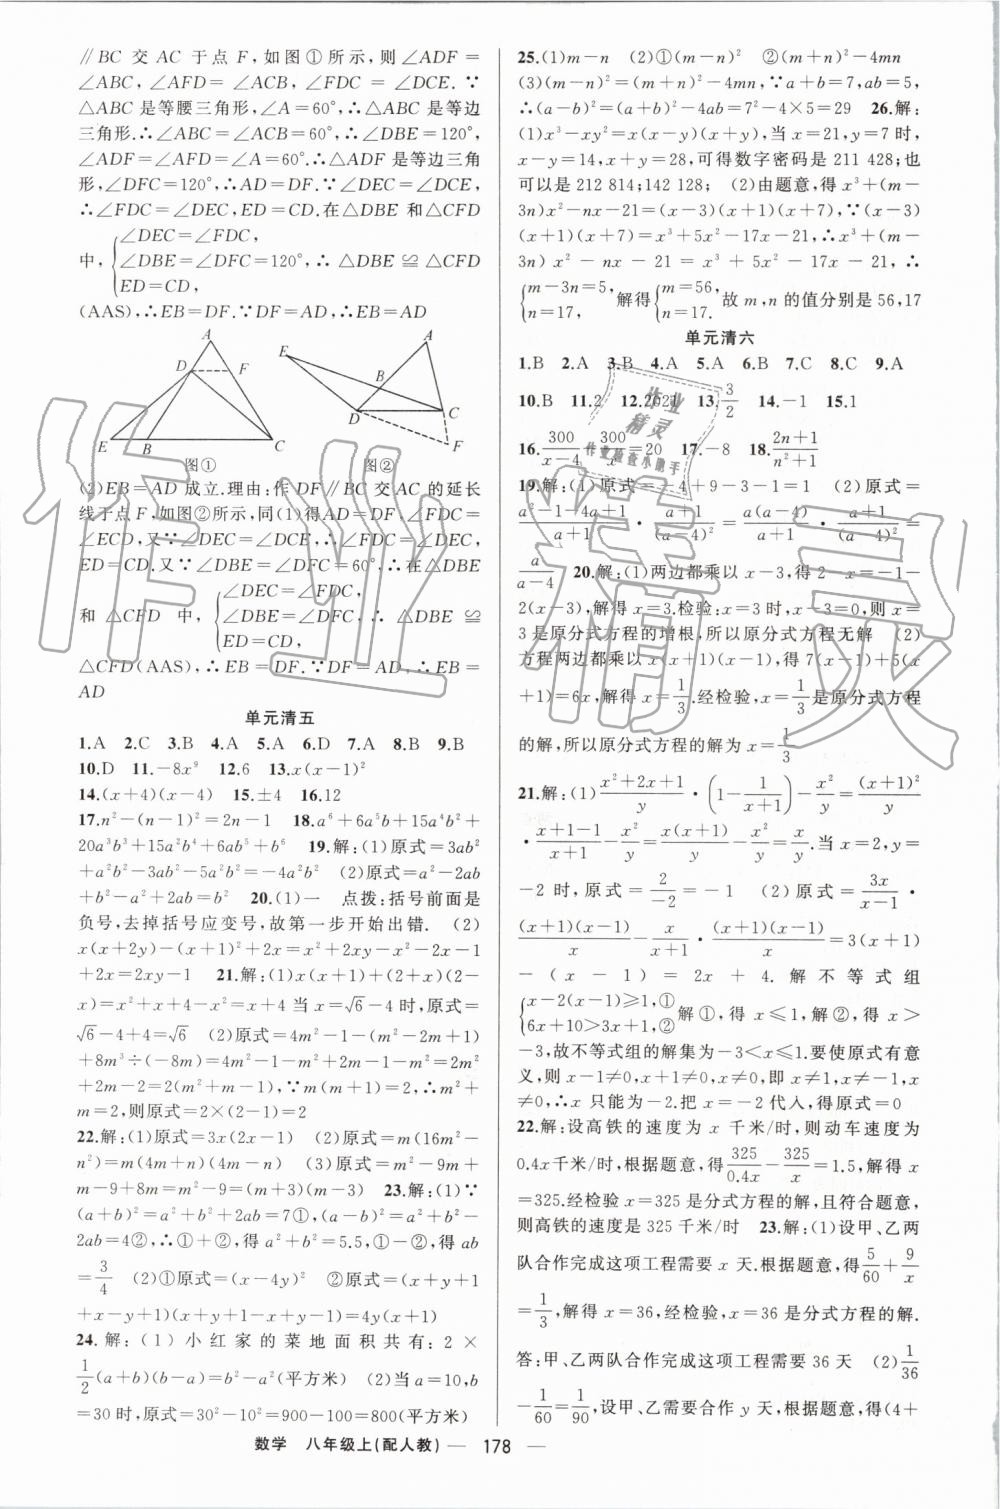 ∥BC 交 AC 于点 F,如图①所示,则∠ADF=
∠ABC,∠AFD=∠ACB,∠FDC=∠DCE.∵
△ABC 是等腰三角形,∠A=60°,∴△ABC 是等边
三角形.∴∠ABC=∠ACB=60°,∴∠DBE=120°,
∠ADF=∠AFD=∠A=60°.∴△ADF 是等边三角
形,∠DFC=120°,∴AD=DF.∵∠DEC=∠DCE,
∴∠FDC=∠DEC,ED=CD.在△DBE 和△CFD
中,{∠DEC=∠FDC,
∠DBE=∠DFC=120°,∴△DBE≌△CFD
ED=CD,
(AAS),∴EB=DF.∵DF=AD,∴EB=AD
A D F E B C
图①
A E B D C F
图②
(2)EB=AD 成立.理由:作 DF∥BC 交 AC 的延长
线于点 F,如图②所示,同(1)得 AD=DF,∠FDC=
∠ECD,又∵∠DEC=∠DCE,∴∠FDC=∠DEC,
ED=CD.又∵∠DBE=∠DFC=60°,∴在△DBE
和△CFD 中,{∠DEC=∠FDC,
∠DBE=∠DFC,∴△DBE≌
ED=CD,
△CFD(AAS),∴EB=DF.∵DF=AD,∴EB=
AD
单元清五
1.A 2.C 3.B 4.A 5.A 6.D 7.A 8.B 9.B
10.D 11.-8x⁹ 12.6 13.x(x-1)²
14.(x+4)(x-4) 15.±4 16.12
17.n²-(n-1)²=2n-1 18.a⁶+6a⁵b+15a⁴b²+
20a³b³+15a²b⁴+6ab⁵+b⁶ 19.解:(1)原式=3ab²
+a²b²-3ab²-5a²b²=-4a²b² (2)原式=a²-2ab
+b²-a²+2ab=b² 20.(1)一 点拨:括号前面是
负号,去掉括号应变号,故第一步开始出错. (2)
x(x+2y)-(x+1)²+2x=x²+2xy-x²-2x-1
+2x=2xy-1 21.解:(1)x(x+1)+(2+x)(2-
x)=x²+x+4-x²=x+4 当 x=√6-4 时,原式=
√6-4+4=√6 (2)原式=4m²-1-(m²-2m+1)
+8m³÷(-8m)=4m²-1-m²+2m-1-m²=2m²
+2m-2=2(m²+m-1),∵m(m+1)=2,∴m²+
m=2,则原式=2×(2-1)=2
22.解:(1)原式=3x(2x-1) (2)原式=m(16m²-
n²)=m(4m+n)(4m-n) (3)原式=m²-9m+
m-9+8m=m²-9=(m+3)(m-3) 23.解:(1)∵
(a+b)²=a²+b²+2ab=7①,(a-b)²=a²+b²-
2ab=4②,∴①+②,得 a²+b²=5.5,①-②,得 ab
=3/4 (2)①原式=(x-4y)² ②原式=(x+y+1
+x-y+1)(x+y+1-x+y-1)=4y(x+1)
24.解:(1)小红家的菜地面积共有:2×
1/2(a+b)(b-a)=b²-a²(平方米) (2)当 a=10,b
=30 时,原式=30²-10²=900-100=800(平方米)
25.(1)m-n (2)①(m-n)² ②(m+n)²-4mn
(3)(m-n)²=(m+n)²-4mn,∵a+b=7,ab=5,
∴(a-b)²=(a+b)²-4ab=7²-4×5=29 26.解:
(1)x³-xy²=x(x-y)(x+y),当 x=21,y=7 时,
x-y=14,x+y=28,可得数字密码是 211 428;也
可以是 212 814;142 128; (2)由题意,得 x³+(m-
3n)x²-nx-21=(x-3)(x+1)(x+7),∵(x-3)
(x+1)(x+7)=x³+5x²-17x-21,∴x³+(m-
3n)x²-nx-21=x³+5x²-17x-21,∴
{m-3n=5, n=17, 解得{m=56, n=17. 故 m,n 的值分别是 56,17
单元清六
1.B 2.A 3.B 4.A 5.A 6.B 7.C 8.C 9.A
10.B 11.2 12.2021 13.3/2 14.-1 15.1
16.300/(x-4)-300/x=20 17.-8 18.(2n+1)/(n²+1)
19.解:(1)原式=-4+9-3-1=1 (2)原式=
(a²-1-4a+1)/(a+1)·(a+1)/(a-4)²=a(a-4)/(a+1)·(a+1)/(a-4)²=
a/(a-4) 20.解:(1)两边都乘以 x-3,得 2-x=-1-
2(x-3),解得 x=3.检验:x=3 时,x-3=0,则 x=
3 是原分式方程的增根,所以原分式方程无解 (2)
方程两边都乘以 x(x+1)(x-1),得 7(x-1)+5(x
+1)=6x,解得 x=1/3.经检验,x=1/3是原分式方程
的解,所以原分式方程的解为 x=1/3
21.解:(1)(x²+2x+1)/y·(1-1/(x+1))-x²/y=(x+1)²/y
·(x+1-1)/(x+1)-x²/y=x(x+1)/y-x²/y=x/y.当 x=2,y=
-2 时,原式=2/-2=-1 (2)原式=3x/(x-1)·
(x+1)(x-1)/x-x/(x+1)·(x+1)(x-1)/x=3(x+1)
-(x-1)=2x+4.解不等式组
{x-2(x-1)≥1,① 6x+10>3x+1,② 解①,得 x≤1,解②,得 x>
-3,故不等式组的解集为-3<x≤1.要使原式有意
义,则 x-1≠0,x+1≠0,x≠0,即 x≠1,x≠-1,x
≠0,∴x 只能为-2.把 x=-2 代人,得原式=0
22.解:设高铁的速度为 x 千米/时,则动车速度为
0.4x 千米/时,根据题意,得325/0.4x-325/x=1.5,解得 x=
325.经检验 x=325 是分式方程的解,且符合题意,
则高铁的速度是 325 千米/时 23.解:(1)设甲、乙两
队合作完成这项工程需要 x 天.根据题意,得5/60+9/x
=1/3,解得 x=36,经检验,x=36 是分式方程的解.
答:甲、乙两队合作完成这项工程需要 36 天 (2)1/36
-1/60=1/90,设甲、乙需要合作 y 天,根据题意,得(4+
数学 八年级上(配人教) — 178 —
作业精灵
作业精灵
作业检查小助手